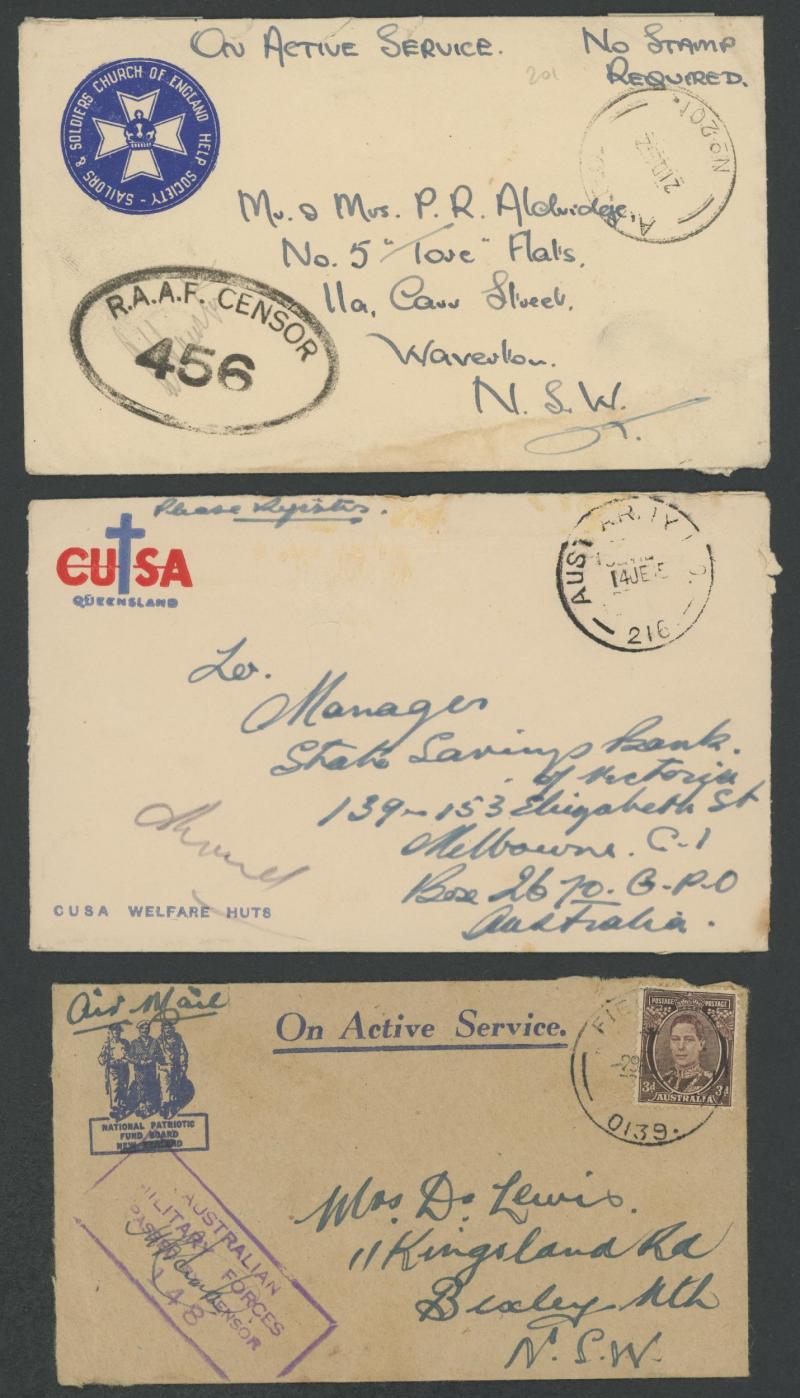 On Active Service. No Stamp
Required.
201
SAILORS & SOLDIERS CHURCH OF ENGLAND HELP SOCIETY
No. 201.
Mr. & Mrs. P. R. Aldridge,
No. 5 "Tove" Flats,
11a, Carr Street,
Waverton.
N. S. W.
R.A.A.F. CENSOR
456
Please Register.
CUSA
QUEENSLAND
AUST. ARMY P.O.
14JE
216
To.
Manager
State Savings Bank.
of Victoria
139-153 Elizabeth St
Melbourne. C-1
Box 2670. G.P.O
Australia.
CUSA WELFARE HUTS
Air Mail
On Active Service.
NATIONAL PATRIOTIC
FUND BOARD
NEW ZEALAND
POSTAGE POSTAGE
3d 3d
AUSTRALIA
0139.
AUSTRALIAN
MILITARY FORCES
PASSED CENSOR
148
Mrs D. Lewis.
11 Kingsland Rd
Bexley Nth
N. S. W.